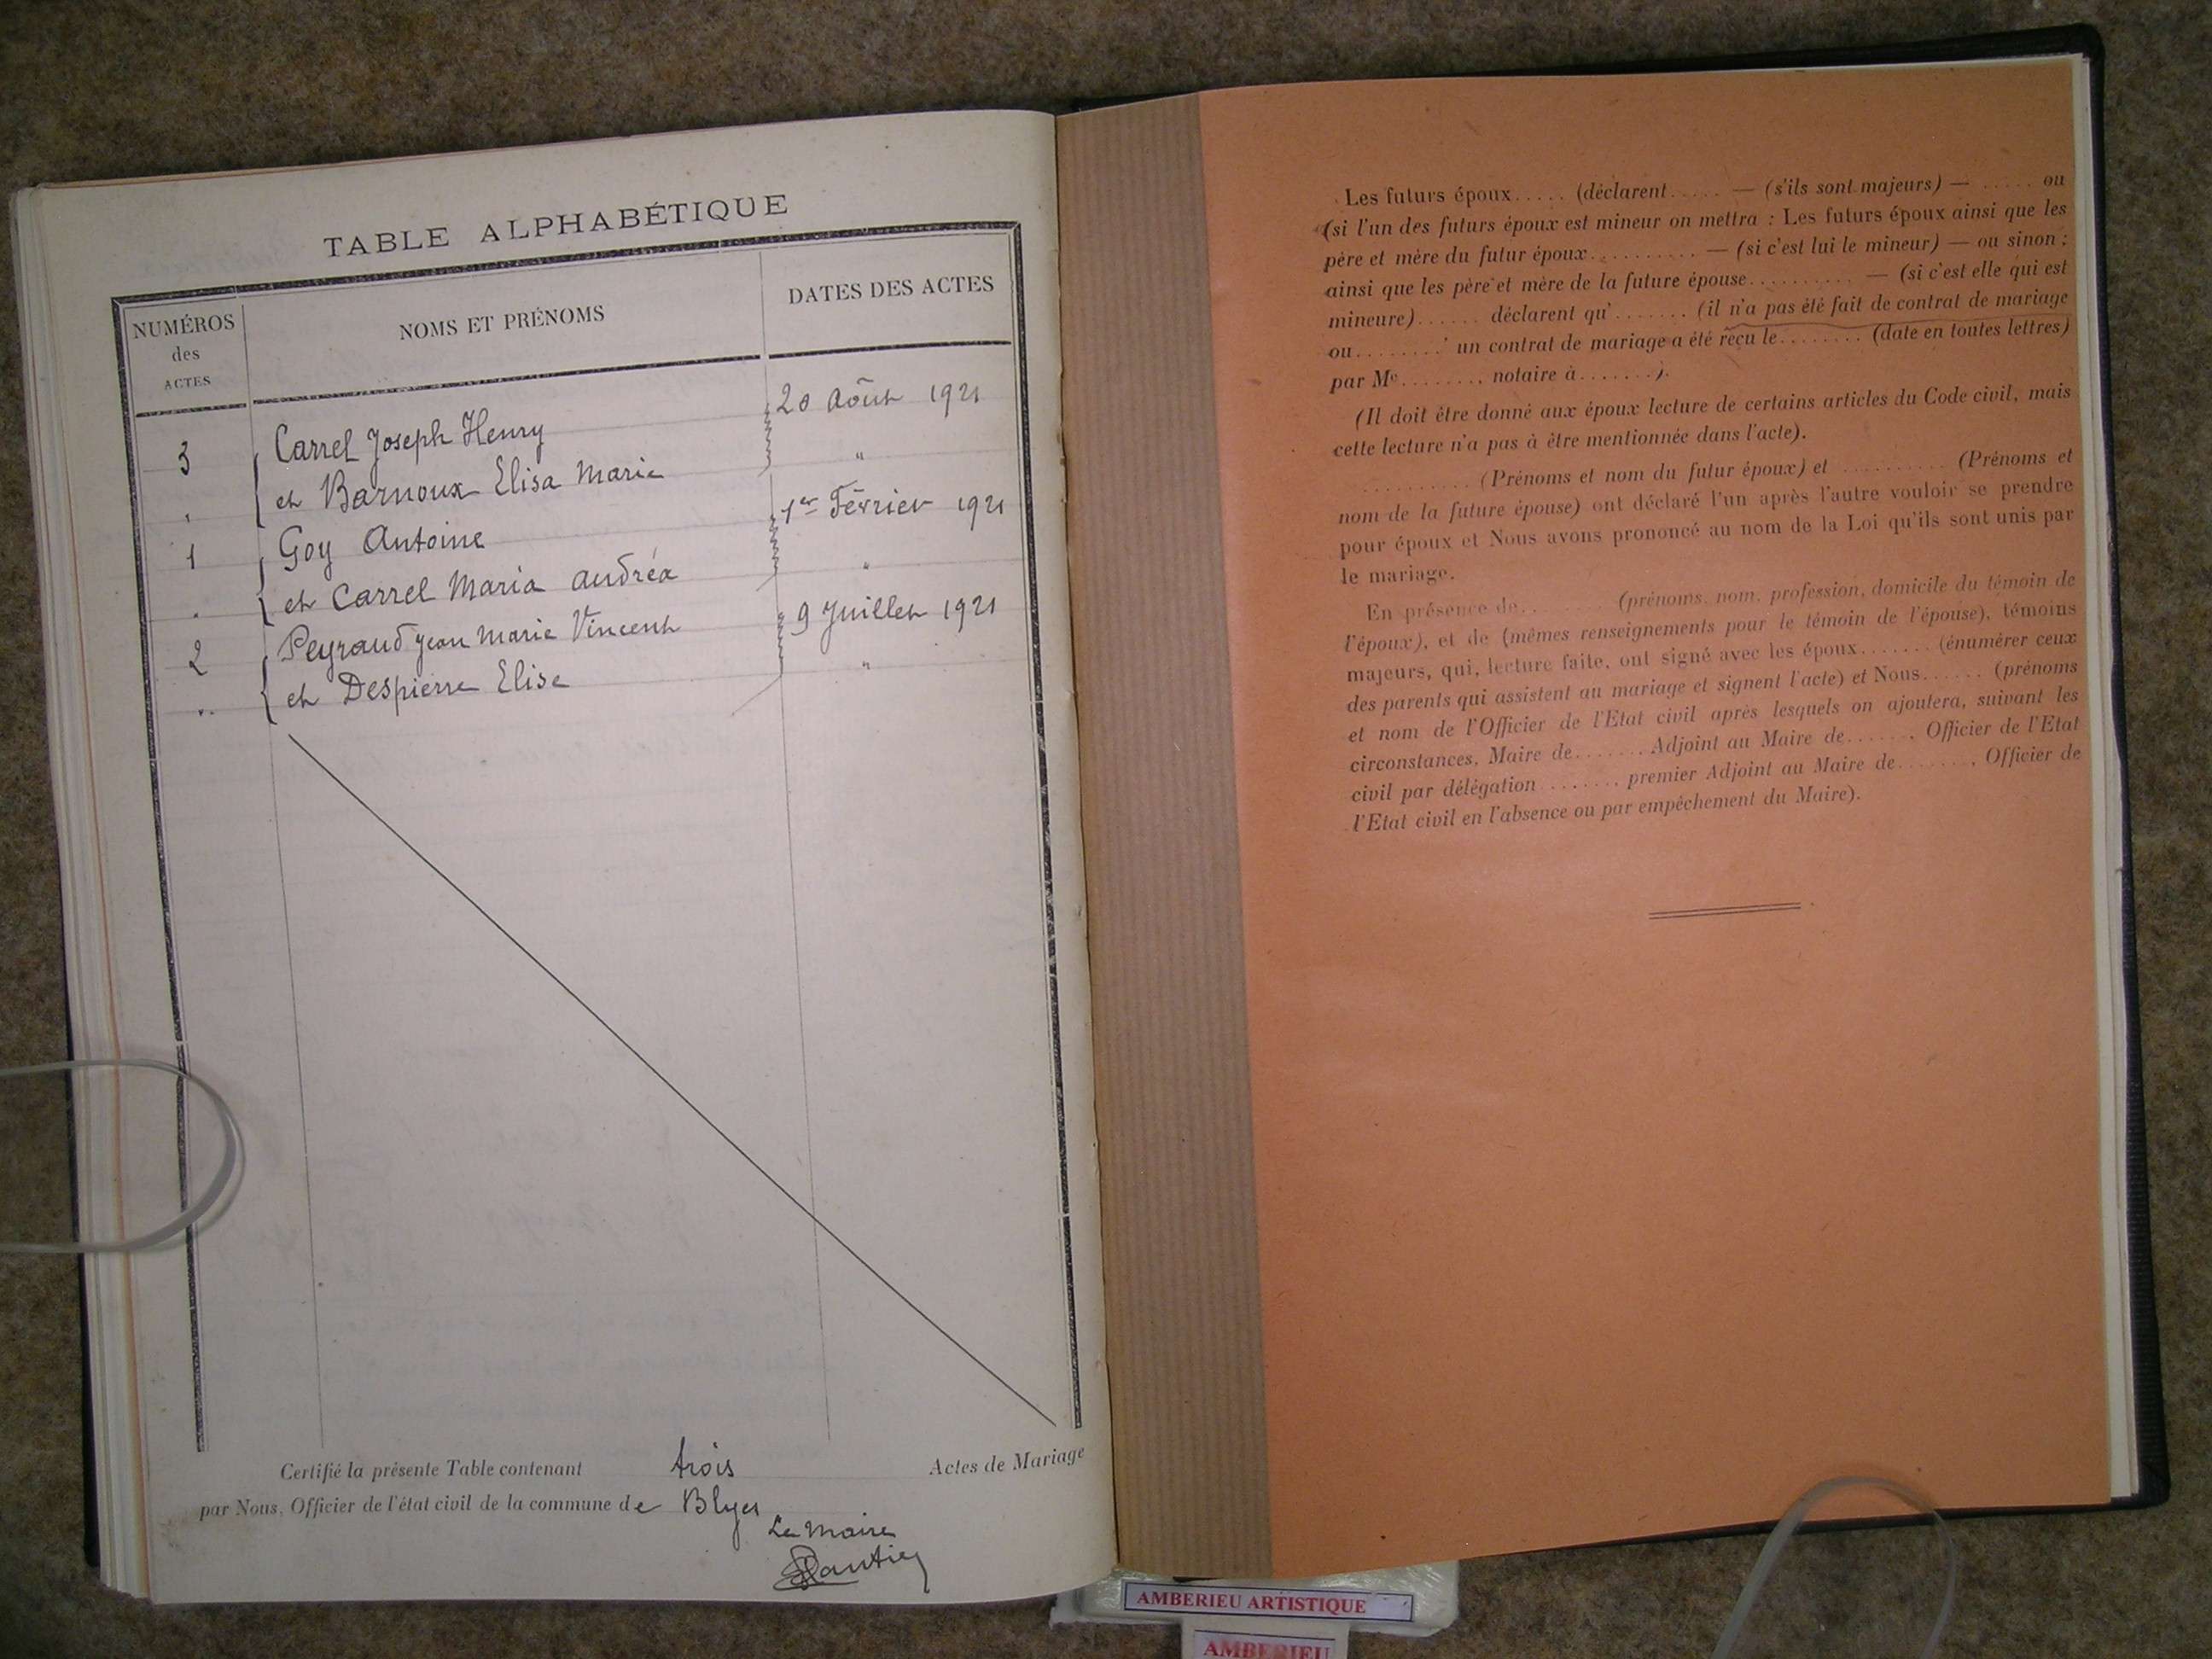 TABLE ALPHABÉTIQUE
NUMÉROS
des
ACTES
NOMS ET PRÉNOMS
DATES DES ACTES
3 Carrel Joseph Henry 20 Août 1921
" et Barnoux Elisa Marie "
1 Goy Antoine 1er Février 1921
" et Carrel Maria Andréa "
2 Peyraud Jean Marie Vincent 9 Juillet 1921
" et Despierre Elise "
Certifié la présente Table contenant trois Actes de Mariage
par Nous, Officier de l'état civil de la commune de Blyes
Le Maire
Les futurs époux..... (déclarent...... — (s'ils sont majeurs) — ...... ou
(si l'un des futurs époux est mineur on mettra : Les futurs époux ainsi que les
père et mère du futur époux........... — (si c'est lui le mineur) — ou sinon :
ainsi que les père et mère de la future épouse.......... — (si c'est elle qui est
mineure)...... déclarent qu'....... (il n'a pas été fait de contrat de mariage
ou........ un contrat de mariage a été reçu le........ (date en toutes lettres)
par Me........, notaire à.......).
(Il doit être donné aux époux lecture de certains articles du Code civil, mais
cette lecture n'a pas à être mentionnée dans l'acte).
.......... (Prénoms et nom du futur époux) et .......... (Prénoms et
nom de la future épouse) ont déclaré l'un après l'autre vouloir se prendre
pour époux et Nous avons prononcé au nom de la Loi qu'ils sont unis par
le mariage.
En présence de.. (prénoms, nom, profession, domicile du témoin de
l'époux), et de (mêmes renseignements pour le témoin de l'épouse), témoins
majeurs, qui, lecture faite, ont signé avec les époux....... (énumérer ceux
des parents qui assistent au mariage et signent l'acte) et Nous...... (prénoms
et nom de l'Officier de l'Etat civil après lesquels on ajoutera, suivant les
circonstances, Maire de....... Adjoint au Maire de......, Officier de l'Etat
civil par délégation ........ premier Adjoint au Maire de......., Officier de
l'Etat civil en l'absence ou par empêchement du Maire).
AMBERIEU ARTISTIQUE
AMBERIEU